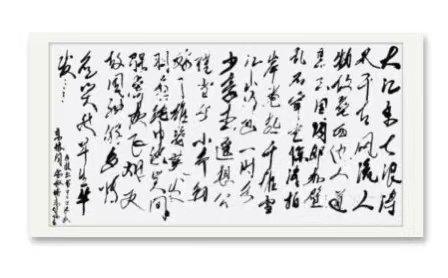 大江东去浪淘
尽千古风流人
物故垒西边人道
是三国周郎赤壁
乱石穿空惊涛拍
岸卷起千堆雪
江山如画一时多
少豪杰遥想公
瑾当年小乔初
嫁了雄姿英发
羽扇纶巾谈笑间
灰飞烟灭
故国神游多情
应笑我早生华
发……